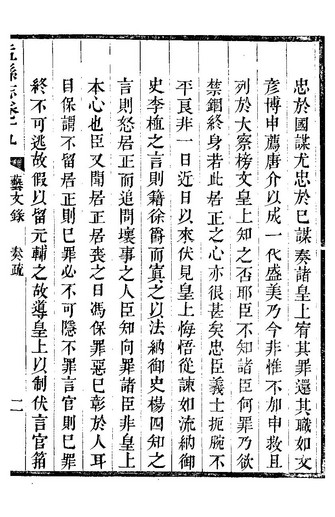 忠於國謀尤忠於巳謀奏諸皇上宥其罪還其職如文
彥博申薦唐介以成一代盛美乃今非惟不加申救且
列於大察榜文皇上知之否耶臣不知諸臣何罪乃欲
禁錮終身若此居正之心亦很甚矣忠臣義士扼腕不
平良非一日近日以來伏見皇上悔悟從諫如流納御
史李植之言則籍徐爵而寘之以法納御史楊四知之
言則怒居正而追問壞事之人臣知向罪諸臣非皇上
本心也臣又聞居正居喪之日馮保罪惡巳彰於人耳
目保謂不留居正則巳罪必不可隱不罪言官則巳罪
終不可逃故假以留元輔之故導皇上以制伏言官箝
縣志卷十九
藝文錄
奏疏
二